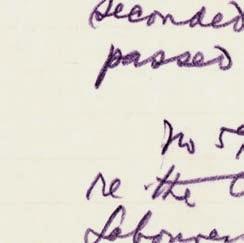 seconded
passed
No 5
re the
Labour